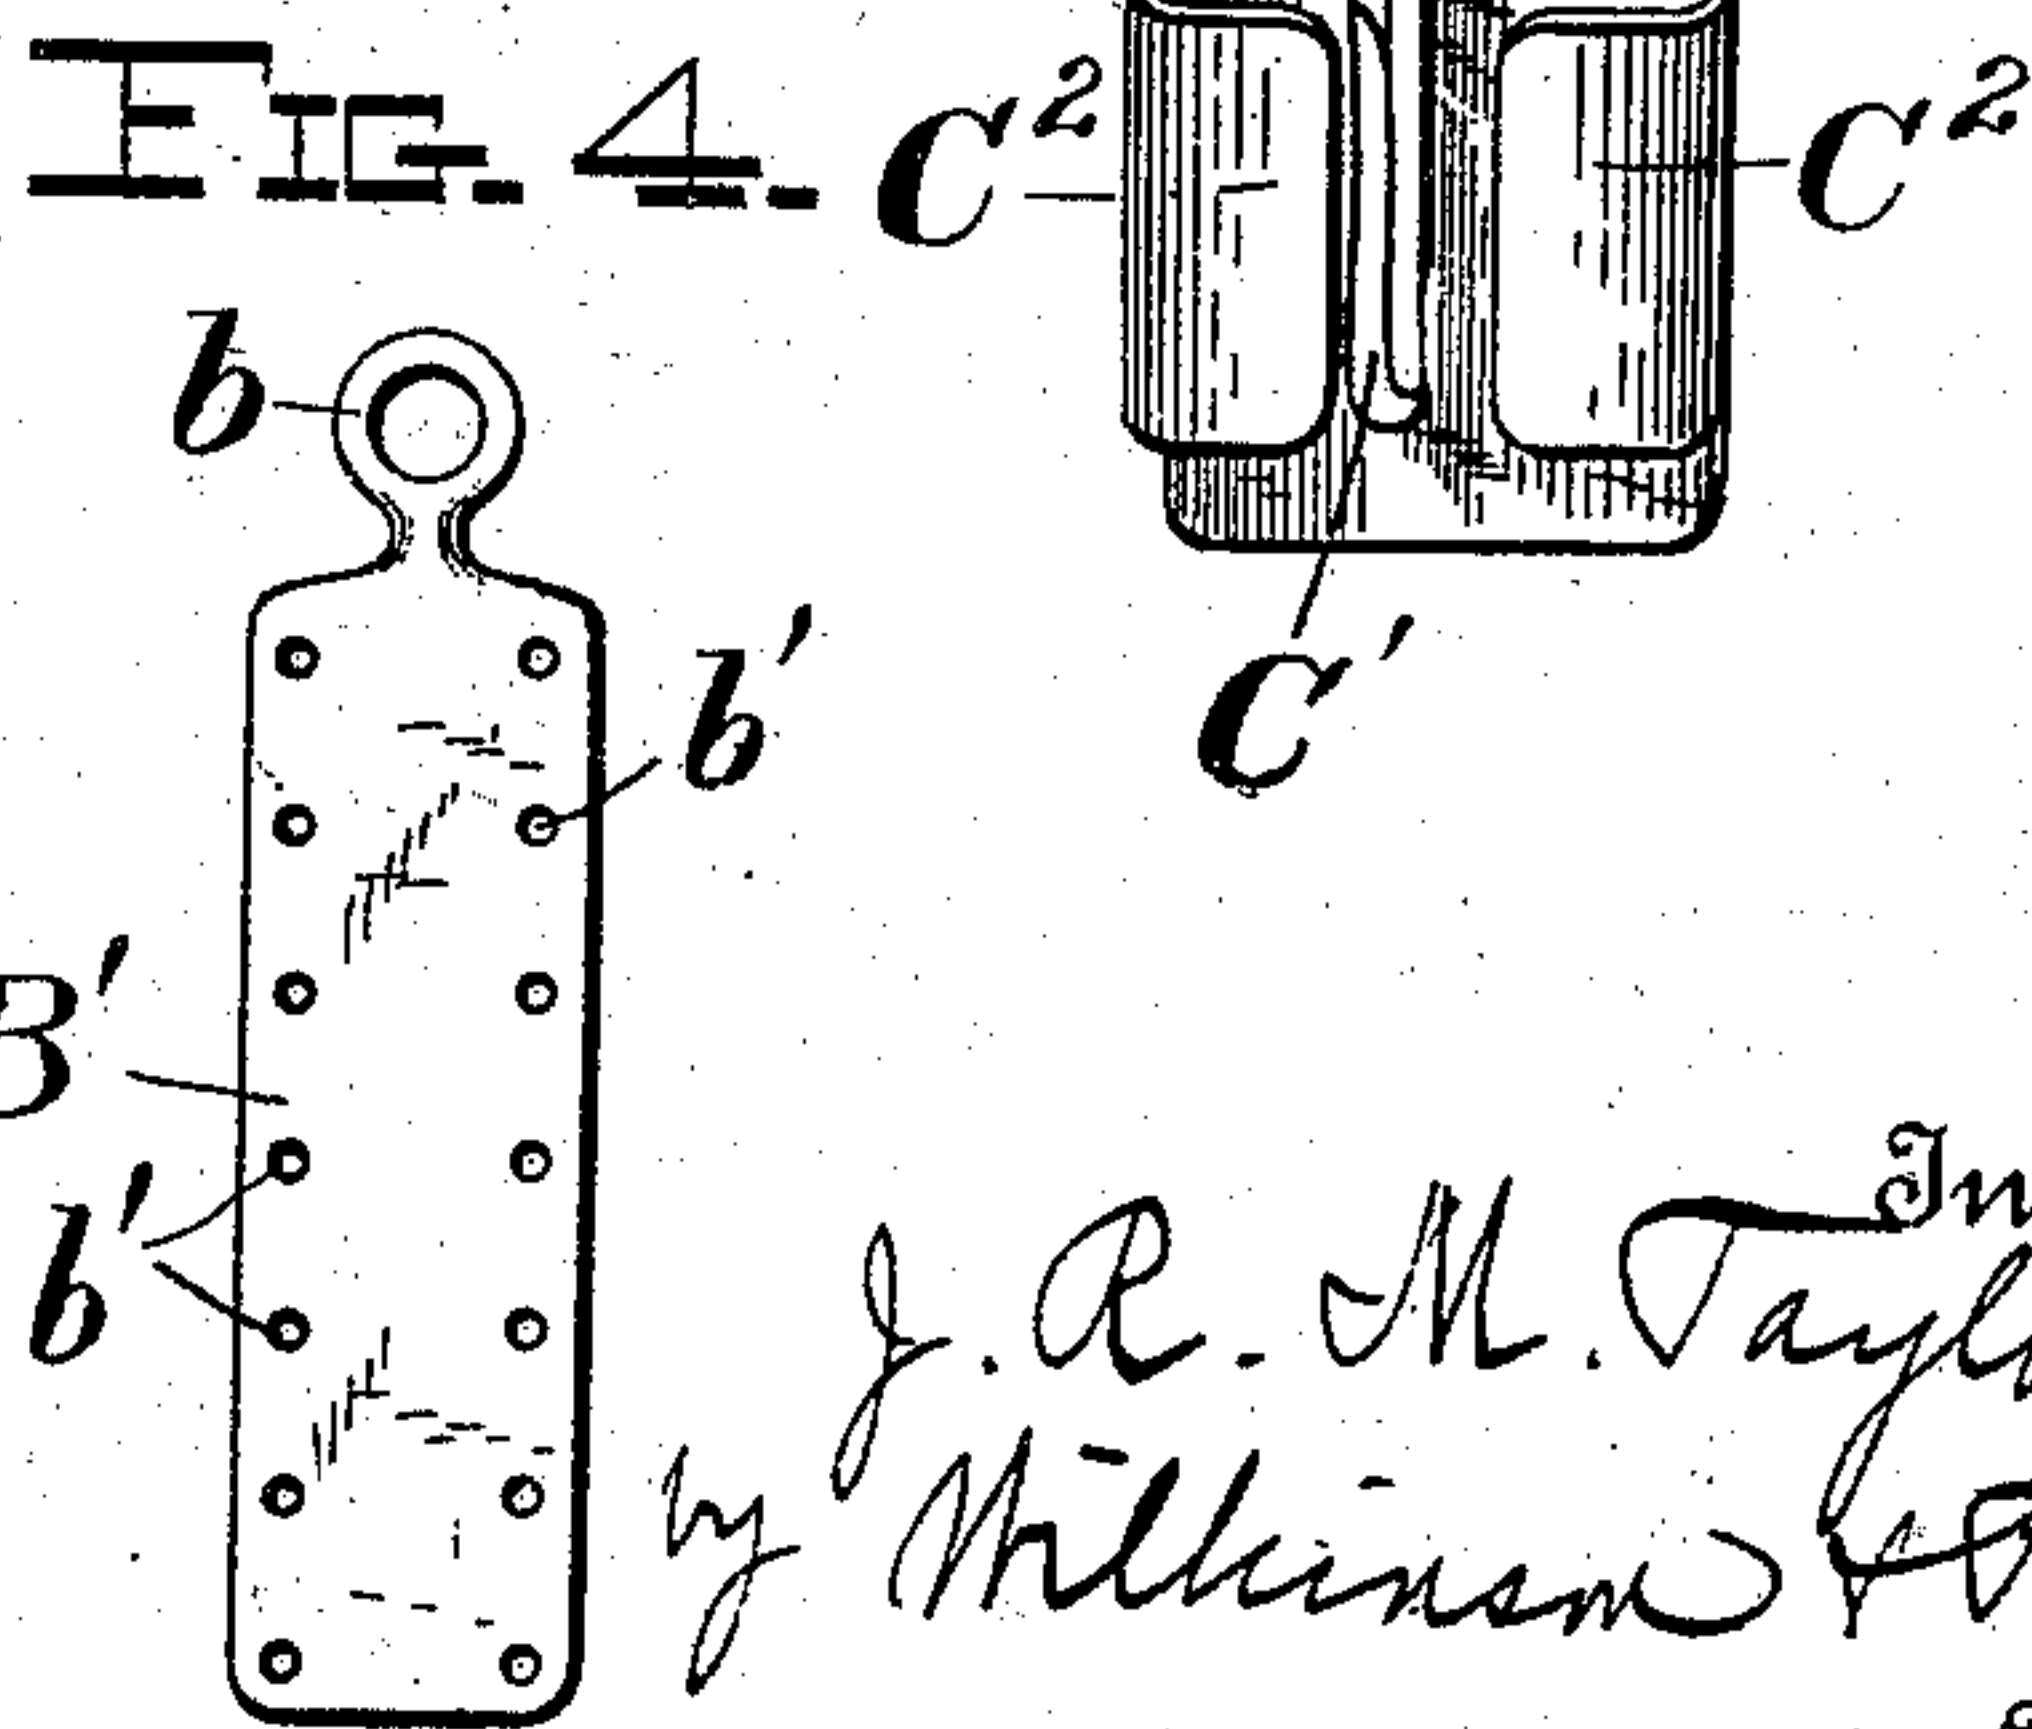 FIG. 4.
C²
C²
b
b'
C'
B'
b'
J. R. M. Tayl
by Wilkinson &